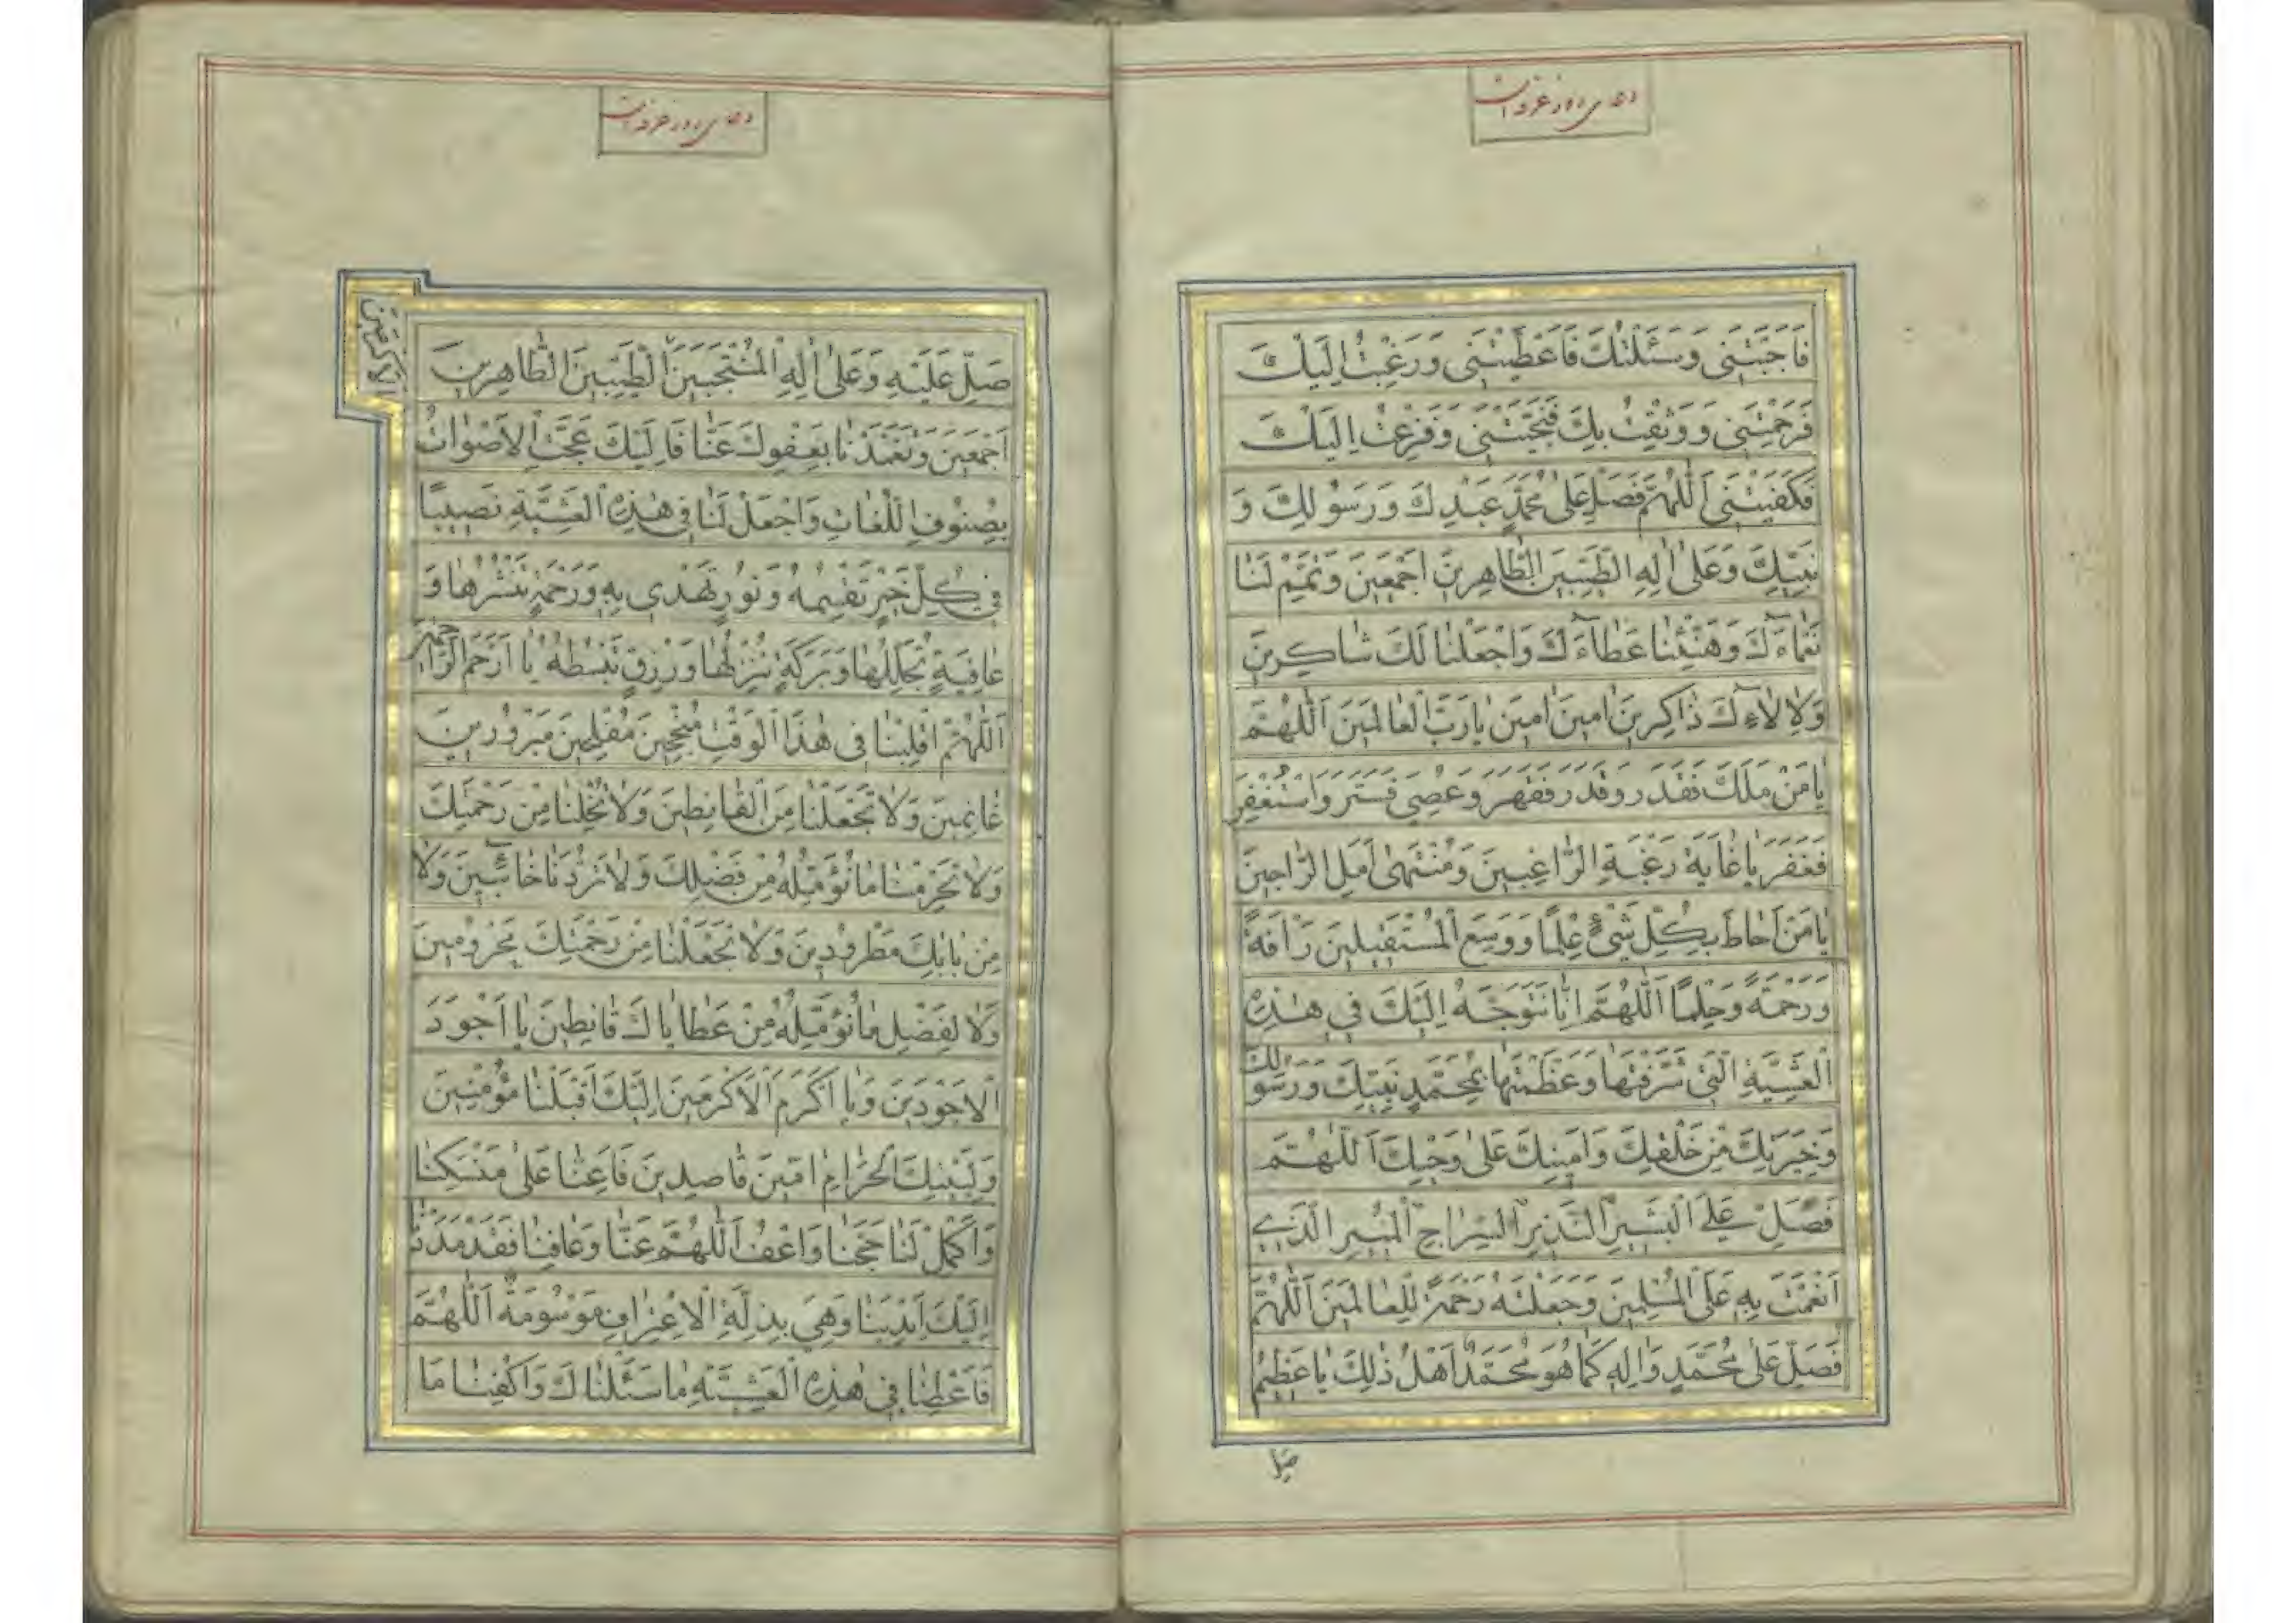 دعای روز عرفه است
فَاَجَبْتَنى وَسَئَلْتُكَ فَاَعْطَيْتَنى وَرَغِبْتُ اِلَيْكَ
فَرَحِمْتَنى وَوَثِقْتُ بِكَ فَنَجَّيْتَنى وَفَزِعْتُ اِلَيْكَ
فَكَفَيْتَنى اَللّٰهُمَّ فَصَلِّ عَلىٰ مُحَمَّدٍ عَبْدِكَ وَرَسُولِكَ وَ
نَبِيِّكَ وَعَلىٰ اٰلِهِ الطَّيِّبينَ الطّاهِرينَ اَجْمَعينَ وَتَمِّمْ لَنا
نَعْمآءَكَ وَهَنِّئْنا عَطآءَكَ وَاجْعَلْنا لَكَ شاكِرينَ
وَلِاٰلآءِكَ ذاكِرينَ امينَ امينَ يا رَبَّ الْعالَمينَ اَللّٰهُمَّ
يا مَنْ مَلَكَ فَقَدَرَ وَقَدَرَ فَقَهَرَ وَعُصِىَ فَسَتَرَ وَاسْتُغْفِرَ
فَغَفَرَ يا غايَةَ رَغْبَةِ الرّاغِبينَ وَمُنْتَهىٰ اَمَلِ الرّاجينَ
يا مَنْ اَحاطَ بِكُلِّ شَىْءٍ عِلْمًا وَوَسِعَ الْمُسْتَقيلينَ رَاْفَةً
وَرَحْمَةً وَحِلْمًا اَللّٰهُمَّ اِنّا نَتَوَجَّهُ اِلَيْكَ فى هٰذِهِ
الْعَشِيَّةِ الَّتى شَرَّفْتَها وَعَظَّمْتَها بِمُحَمَّدٍ نَبِيِّكَ وَرَسُولِكَ
وَخِيَرَتِكَ مِنْ خَلْقِكَ وَاَمينِكَ عَلىٰ وَحْيِكَ اَللّٰهُمَّ
فَصَلِّ عَلَى الْبَشيرِ النَّذيرِ السِّراجِ الْمُنيرِ الَّذى
اَنْعَمْتَ بِهِ عَلَى الْمُسْلِمينَ وَجَعَلْتَهُ رَحْمَةً لِلْعالَمينَ اَللّٰهُمَّ
فَصَلِّ عَلىٰ مُحَمَّدٍ وَاٰلِهِ كَما هُوَ مُحَمَّدٌ اَهْلُ ذٰلِكَ يا عَظيمُ
صل
دعای روز عرفه است
صَلِّ عَلَيْهِ وَعَلىٰ اٰلِهِ الْمُنْتَجَبينَ الطَّيِّبينَ الطّاهِرينَ
اَجْمَعينَ وَتَغَمَّدْنا بِعَفْوِكَ عَنّا فَاِلَيْكَ عَجَّتِ الْاَصْواتُ
بِصُنُوفِ اللُّغاتِ وَاجْعَلْ لَنا فى هٰذِهِ الْعَشِيَّةِ نَصيبًا
فى كُلِّ خَيْرٍ تَقْسِمُهُ وَنُورٍ تَهْدى بِهِ وَرَحْمَةٍ تَنْشُرُها وَ
عافِيَةٍ تُجَلِّلُها وَبَرَكَةٍ تُنْزِلُها وَرِزْقٍ تَبْسُطُهُ يا اَرْحَمَ الرّاحِمينَ
اَللّٰهُمَّ اقْلِبْنا فى هٰذَا الْوَقْتِ مُنْجِحينَ مُفْلِحينَ مَبْرُورينَ
غانِمينَ وَلا تَجْعَلْنا مِنَ الْقانِطينَ وَلا تُخْلِنا مِنْ رَحْمَتِكَ
وَلا تَحْرِمْنا ما نُؤَمِّلُهُ مِنْ فَضْلِكَ وَلا تَرُدَّنا خآئِبينَ وَلا
مِنْ بابِكَ مَطْرُودينَ وَلا تَجْعَلْنا مِنْ رَحْمَتِكَ مَحْرُومينَ
وَلا لِفَضْلِ ما نُؤَمِّلُهُ مِنْ عَطاياكَ قانِطينَ يا اَجْوَدَ
الْاَجْوَدينَ وَيا اَكْرَمَ الْاَكْرَمينَ اِلَيْكَ اَقْبَلْنا مُؤْمِنينَ
الاكرمين
وَلِبَيْتِكَ الْحَرامِ امّينَ قاصِدينَ فَاَعِنّا عَلىٰ مَنْسَكِنا
وَاَكْمِلْ لَنا حَجَّنا وَاعْفُ اَللّٰهُمَّ عَنّا وَعافِنا فَقَدْ مَدَدْنا
اِلَيْكَ اَيْدِيَنا وَهِىَ بِذِلَّةِ الْاِعْتِرافِ مَوْسُومَةٌ اَللّٰهُمَّ
فَاَعْطِنا فى هٰذِهِ الْعَشِيَّةِ ما سَئَلْناكَ وَاكْفِنا مَا